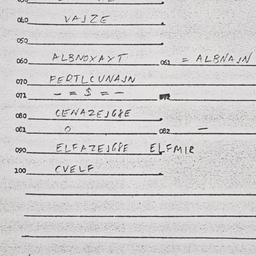 040 VAJZE
050
060 ALBNOXAYT 061 = ALBNAJN
070 FERTLCUNAJN
071 - = $ = -
080 CENAZEJGXE
081 O 082 -
090 ELFAZEJGXE ELFMIR
100 CVELF